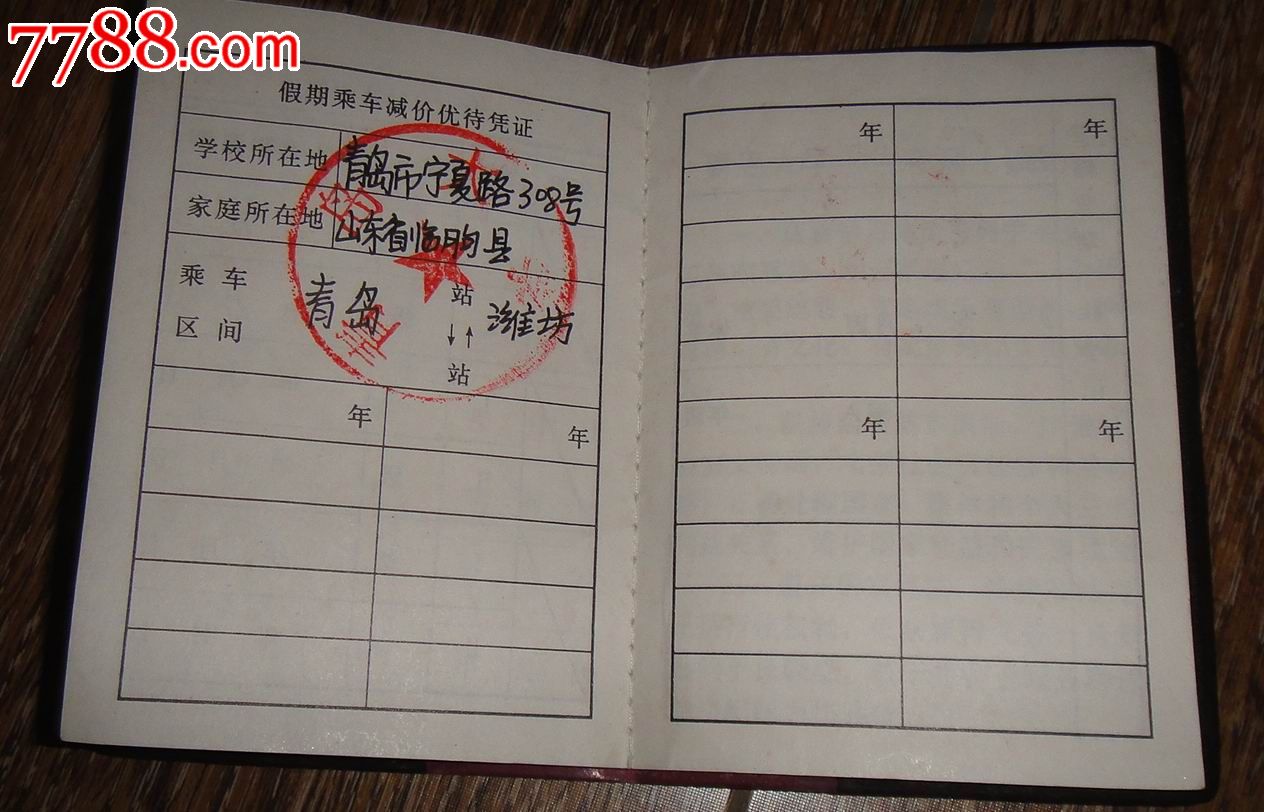 7788.com
假期乘车减价优待凭证
学校所在地 青岛市宁夏路308号
家庭所在地 山东省临朐县
乘车 站
区间 青岛 ↓↑ 潍坊
站
年 年
年 年
年 年
青岛大学